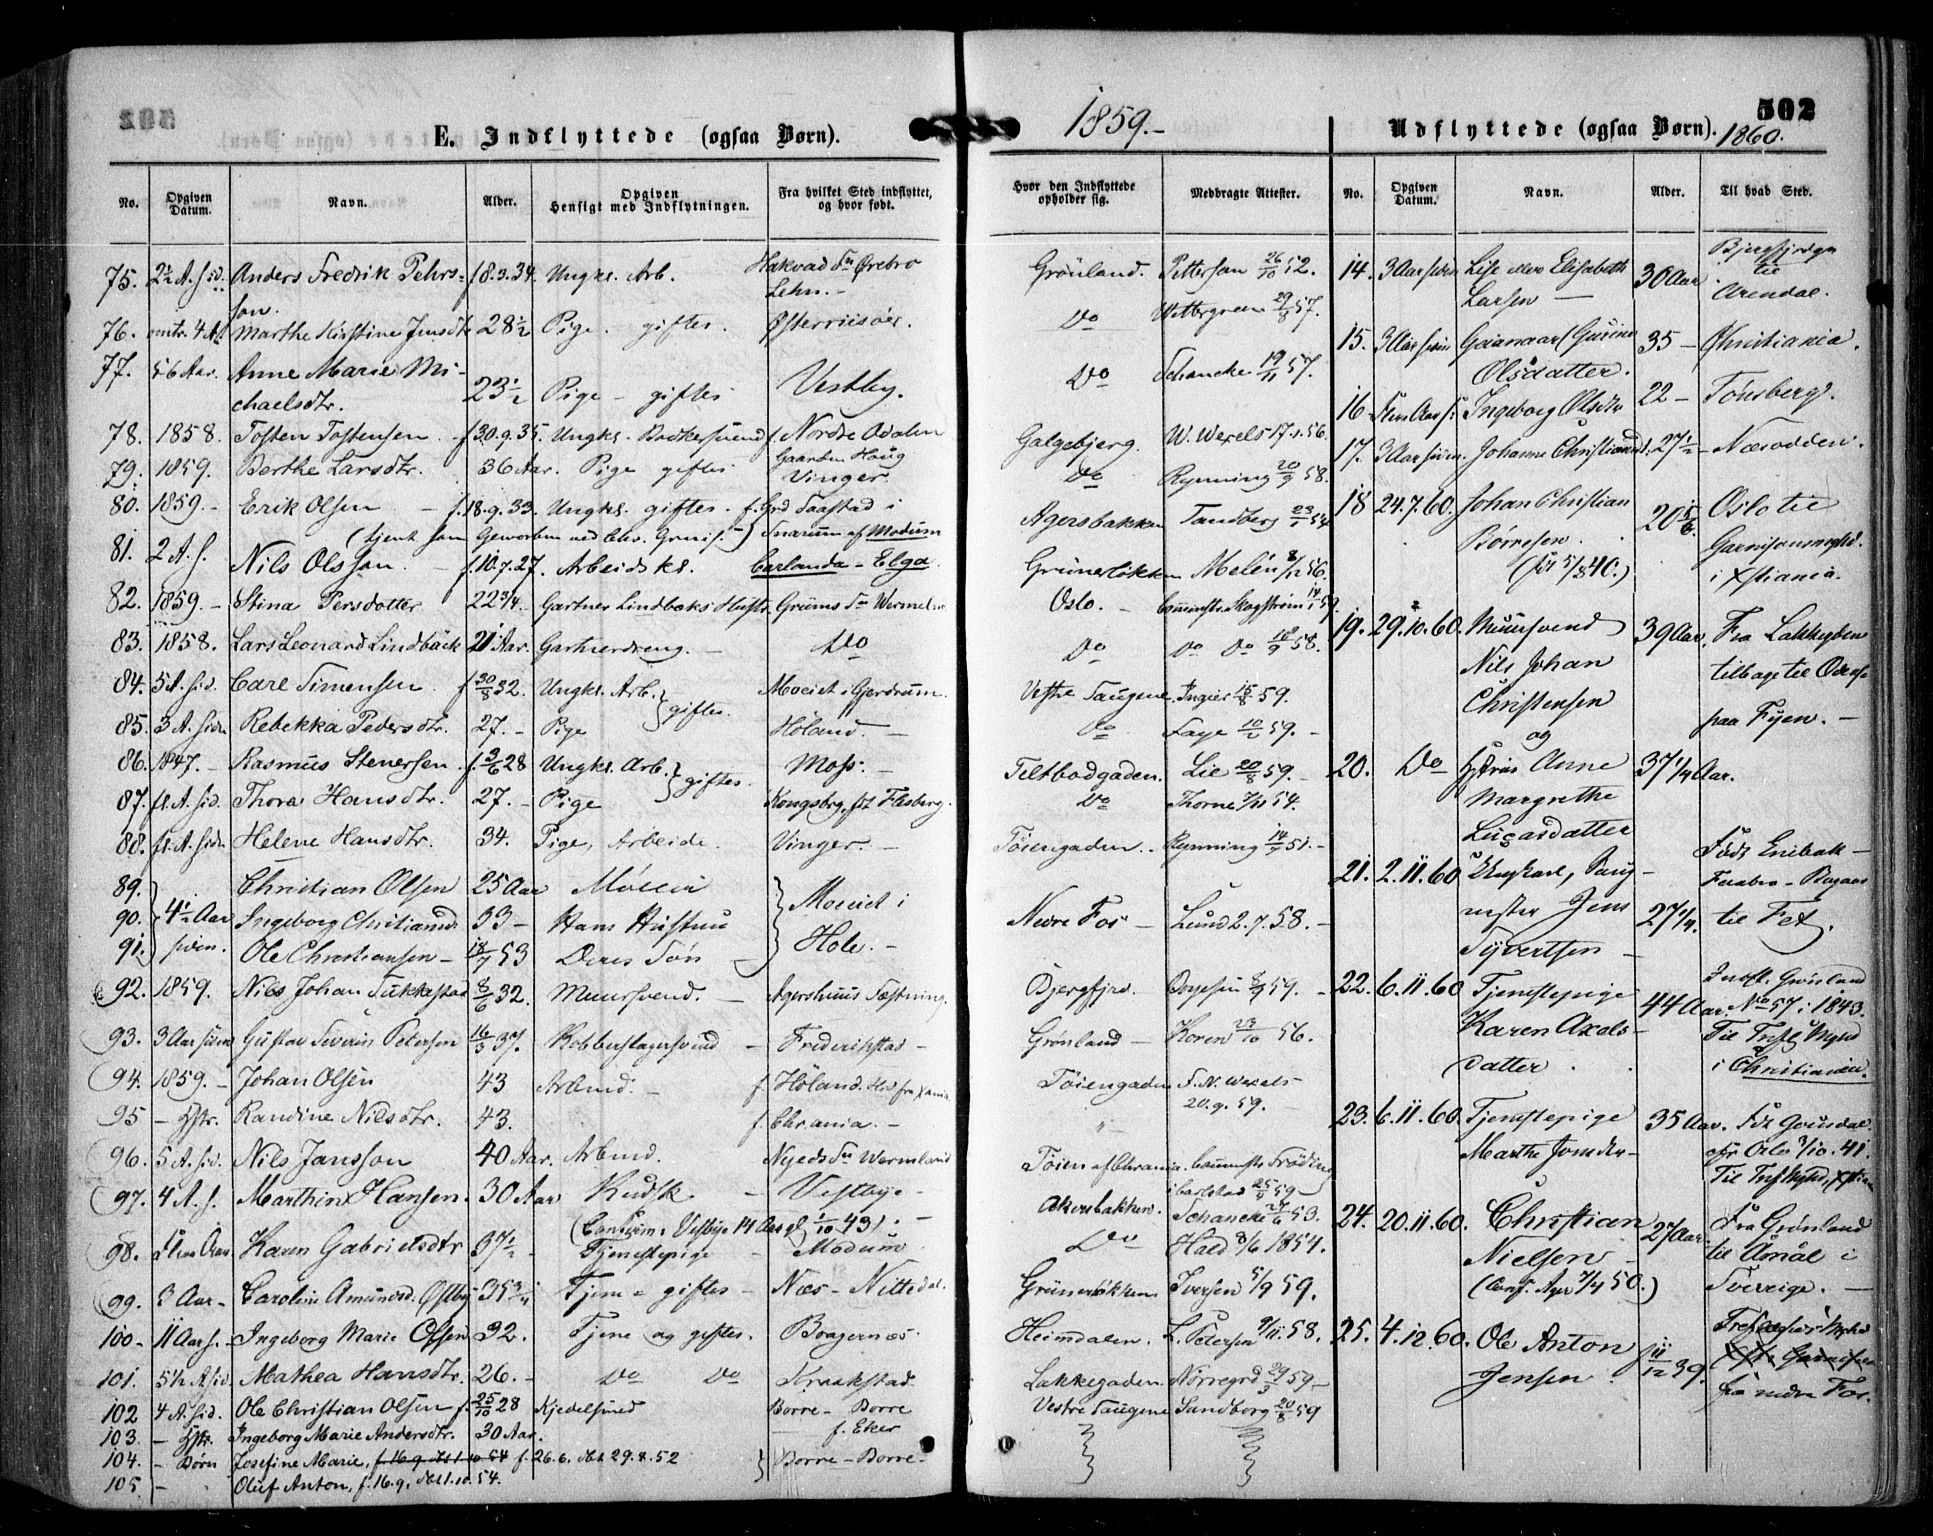 502
E. Indflyttede (ogsaa Børn).
1859.-
Udflyttede (ogsaa Børn).
1860.
No. Opgiven Datum. Navn. Alder. Opgiven Hensigt med Indflytningen. Fra hvilket Sted indflyttet, og hvor født. Hvor den Indflyttede opholder sig. Medbragte Attester.
75. 2½ A. sid. Anders Fredrik Pehrs- f 8.3.34. Ungk. Arb. Hakvad Sn Ørebro Grønland. Petterson 26/10 52.
son. Lehn.-
76. omtr. 4 A. Marthe Kirstine Jensdtr 28½ Pige. giftes. Østerriisöer. Do Wettergreen 29/8 57.
77. 5-6 Aar. Anne Marie Mi- 23½ Pige - giftes Vestby. Do Schancke 19/11 57.
chaelsdtr.
78. 1858. Tosten Tostensen. f 30.9.35. Ungk. Bødkersvend f. Nordre Odalen Galgebjerg. W. Wexels 17.1.56.
79. 1859. Berthe Larsdtr. 36 Aar. Pige giftes Gaarden Haug Vinger. Do Rynning 20/9 58.
80. 1859.- Erik Olsen f. 18.9.33. Ungk. giftes. f. Grd Taastad i Agersbakken Tandberg 23/1 54
(tjent som Geworben ved Snarum af Modum
81. 2 A. s. Nils Olsson f. 10.7.27. Arbeidsk. Carlanda - Elga. Grünerløkken Melén 8/12 56.
82. 1859.- Stina Persdotter 22¾. Gartner Lindbäks Hustr. Grums Sn Oslo.- Skagstrøm 14/1 59
83. 1858. Lars Leonard Lindbäck 21 Aar. Gartnerdreng. Do Do Do Do 58.
84. 5 A. sid. Carl Simensen. f 30/8 32. Ungk. Arb. giftes. Moeiet i Gjerdrum. Vestre Taugene. Ingier 15/8 59.
85. 3 A. siden Rebekka Pedersdtr. 27.- Pige Höland. Do Faye 10/2 59.-
86. 1847.- Rasmus Stenersen. f. 3/6 28 Ungk. Arb. giftes. Moss. Teltbodgaden. Lie 20/8 59.-
87. fl. A. sid. Thora Hansdtr. 27.- Pige Kongsbrg, fdt Flesberg. Do Thorne 7/11 54.
88. fl. A. siden Helene Hansdtr. 34. Pige, Arbeide. Vinger.- Töiengaden. Rynning 14/9 51.-
89. Christian Olsen 25 Aar
90. 4½ Aar Ingeborg Christiansd 33 - Hans Hustru Moeiet i Nedre Fos - Lund 2.7.58.-
91. siden. Ole Christiansen - 18/7 53 Deres Sön Hole.-
92. 1859. Nils Johan 8/6 32. Muursvend. Agershuus Fæstning. Bjergfjrd. 8/9 59.
93. 3 Aar siden Gustav Severin Petersen 16/3 37. Kobberslagersvend Frederikstad Grønland Koren 23/10 56.
94. 1859.- Johan Olsen 43 Arbmd.- f. Höland. Tøiengaden F. N. Wexels 20.9.59.-
95 - Hstr. Randine Nilsdtr. 43. f. Chrania.- "
96. 5 A. sid. Nils Jansson 40 Aar. Arbmd. Nyeds Sn Wermland Töien af Chrania. Fröding i Carlstad 25/9 59
97. 4 A. s. Marthin Hansen. 30 Aar Kudsk Vestbye- Akersbakken. Schancke 53.
(Confirm. Vestbye 14 Aar gl 1/10 43).
98. Karen Gabrielsdtr 37½ Tjenestepige Modum Do Hald 3/6 1854.
99. 3 Aar - Caroline Amundsd. Østby 35¾ Tjene & giftes - Næs - Nittedal. Grünerløkken Iversen 5/9 59.
100- 11 Aar s.- Ingeborg Marie Olsen 32. Tjene og giftes. Bragernæs. Heimdalen. L. Petersen 9/11 58.
101. 5½ A sid Mathea Hansdtr. 26.- Do Do Kraakstad Lakkegaden. Nörregrd 29/3 59-
102 4 A. sid. Ole Christian Olsen f. 25/10 28 Kjedelsmed Borre - Borre Vestre Taugene Sandborg 20/8 59
103. - Hstr. Ingeborg Marie Andersdtr. 30 Aar. f. Eker
104. - Børn Josefine Marie, f. 16.9. dbt 1.10 54 f. 26.6. dbt 29.8.52 Borre - Borre-
105. - Oluf Anton, f. 16.9. dbt 1.10.54.
No. Opgiven Datum. Navn. Alder. Til hvad Sted.
14. 3 Aar siden Lise eller Elisabeth Larsen 30 Aar Bjergfjrdgn til Arendal.
15. 3 Aar siden Olsdatter. 35 - Christiania.
16 Ingeborg Olsdtr 22 - Tønsberg.
17. 3 Aar siden. Johanne Christiansd. 27½ Næsodden.
18 24.7.60. Johan Christian 20 5/6 Oslo til
Börresen. Garnisonsmghd.
(fdt 5/8 40.) i Xstiania.
19. 29.10.60. Muursvend 39 Aar. Fra Lakkegden
Nils Johan tilbage til Odense
Christensen paa Fyen.-
og
20. Do Hstrus Anne 37¼ Aar.
Margrethe
Lucasdatter
21. 2.11.60 Ungkarl, Bang- Född Enebak -
mester Jens 27¼. til Fet.
Syvertsen
22. 6.11.60 Tjenstepige 44 Aar. Indfl. Grønland No 57 i 1843.
Karen Axels- Til Trefl. Mghd
datter. i Christiania.
23. 6.11.60. Tjenstepige 35 Aar. Fdt Grüsdal
Marthe Jensdtr- Oslo 3/10.41.
Til Trflt Mghd, Xstiania
24. 20.11.60. Christian 27 Aar Fra Grønland
Nielsen til Åmål i
(Conf. Ager 7/4 50.) Sverrige.
25. 4.12.60. Ole Anton f 11/12 39. Trefoldigheds Mghd
Jensen. fra nedre Fos.